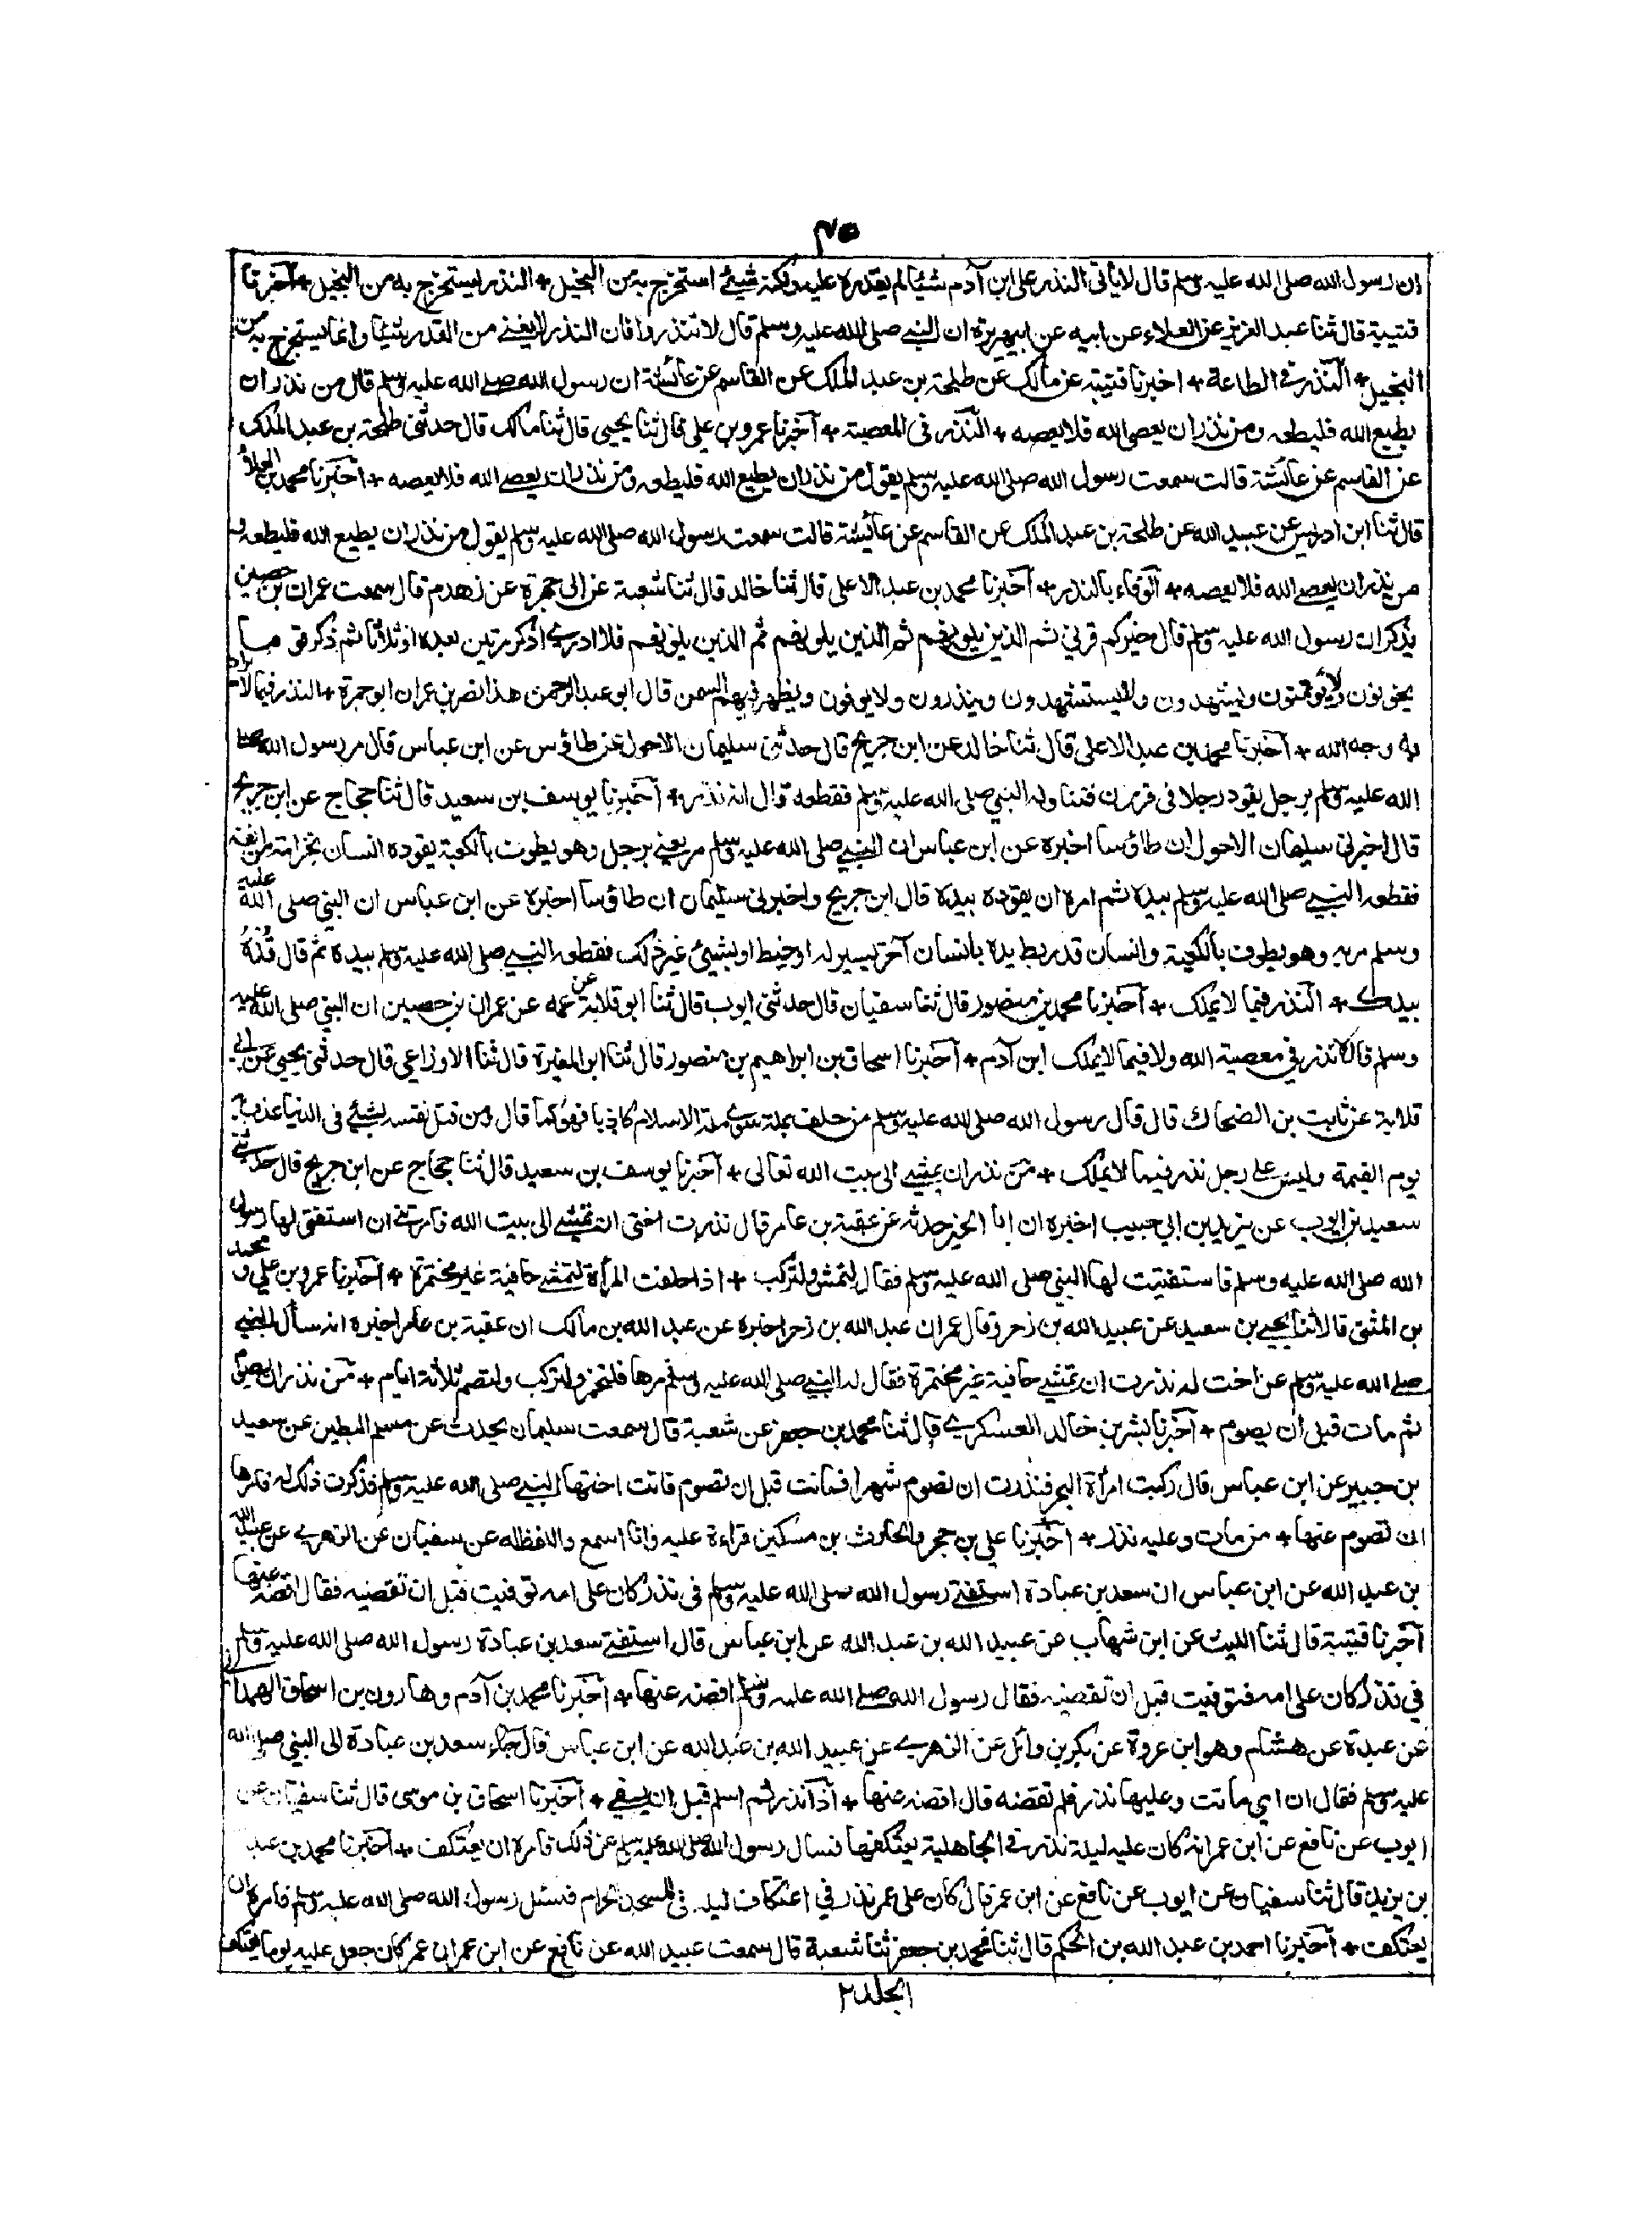 ان رسول الله صلى الله عليه وسلم قال لا يأتى النذر على ابن آدم شيئا لم يقدره عليه ولكنه شيئ استخرج به من البخيل + النذر ليستخرج به من البخيل + آخبرنا
قتيبة قال ثنا عبد العزيز عن العلاء عن ابيه عن ابيهريرة ان النبي صلى الله عليه وسلم قال لا تنذروا فان النذر لا يغني من القدر شيئا وانما يستخرج به من
البخيل + النذر في الطاعة + اخبرنا قتيبة عن مالك عن طلحة بن عبد الملك عن القاسم عن عائشة ان رسول الله صلى الله عليه وسلم قال من نذر ان
يطيع الله فليطعه ومن نذر ان يعصى الله فلا يعصه + النذر في المعصية + آخبرنا عمرو بن علي قال ثنا يحيى قال ثنا مالك قال حدثني طلحة بن عبد الملك
عن القاسم عن عائشة قالت سمعت رسول الله صلى الله عليه وسلم يقول من نذر ان يطيع الله فليطعه ومن نذر ان يعصى الله فلا يعصه + آخبرنا محمد بن العلاء
قال ثنا ابن ادريس عن عبيد الله عن طلحة بن عبد الملك عن القاسم عن عائشة قالت سمعت رسول الله صلى الله عليه وسلم يقول من نذر ان يطيع الله فليطعه و
من نذر ان يعصى الله فلا يعصه + الوفاء بالنذر + آخبرنا محمد بن عبد الاعلى قال ثنا خالد قال ثنا شعبة عن ابى جمرة عن زهدم قال سمعت عمران بن حصين
يذكر ان رسول الله عليه وسلم قال خيركم قرني ثم الذين يلونهم ثم الذين يلونهم ثم الذين يلونهم فلا ادري اذكر مرتين بعده او ثلاثا ثم ذكر قوما
يخونون ولا يؤتمنون ويشهدون ولا يستشهدون وينذرون ولا يوفون ويظهر فيهم السمن قال ابو عبد الرحمن هذا نصر بن عمران ابو جمرة + النذر فيما لا يراد
به وجه الله + آخبرنا محمد بن عبد الاعلى قال ثنا خالد عن ابن جريج قال حدثنى سليمان الاحول عن طاؤس عن ابن عباس قال مر رسول الله صلى
الله عليه وسلم برجل يقود رجلا في قرن فتناوله النبي صلى الله عليه وسلم فقطعه قال انه نذر + آخبرنا يوسف بن سعيد قال ثنا حجاج عن ابن جريج
قال اخبرني سليمان الاحول ان طاؤسا اخبره عن ابن عباس ان النبي صلى الله عليه وسلم مر يعني برجل وهو يطوف بالكعبة يقوده انسان بخزامة في انفه
فقطعه النبي صلى الله عليه وسلم بيده ثم امره ان يقوده بيده قال ابن جريج واخبرني سليمان ان طاؤسا اخبره عن ابن عباس ان النبي صلى الله عليه
وسلم مر به وهو يطوف بالكعبة وانسان قد ربط يده بانسان آخر بسير له او خيط او بشيئ غير ذلك فقطعه النبي صلى الله عليه وسلم بيده ثم قال قده
بيدك + النذر فيما لا يملك + آخبرنا محمد بن منصور قال ثنا سفيان قال حدثنى ايوب قال ثنا ابو قلابة عن عمه عن عمران بن حصين ان النبي صلى الله عليه
وسلم قال لا نذر في معصية الله ولا فيما لا يملك ابن آدم + آخبرنا اسحاق بن ابراهيم بن منصور قال ثنا ابو المغيرة قال ثنا الاوزاعي قال حدثنى يحيى عن ابى
قلابة عن ثابت بن الضحاك قال قال رسول الله صلى الله عليه وسلم من حلف بملة سوى ملة الاسلام كاذبا فهو كما قال ومن قتل نفسه بشيئ في الدنيا عذب به
يوم القيمة وليس على رجل نذر فيما لا يملك + من نذر ان يمشي الى بيت الله تعالى + آخبرنا يوسف بن سعيد قال ثنا حجاج عن ابن جريج قال حدثني
سعيد بن ايوب عن يزيد بن ابي حبيب اخبره ان ابا الخير حدثه عن عقبة بن عامر قال نذرت اختى ان تمشي الى بيت الله فامرتني ان استفتى لها رسول
الله صلى الله عليه وسلم فاستفتيت لها النبي صلى الله عليه وسلم فقال لتمش ولتركب + اذا حلفت المرأة لتمشي حافية غير مختمرة + آخبرنا عمرو بن علي و محمد
بن المثنى قالا ثنا يحيى بن سعيد عن عبيد الله بن زحر وقال عمرو ان عبد الله بن زحر اخبره عن عبد الله بن مالك ان عقبة بن عامر اخبره انه سأل النبي
صلى الله عليه وسلم عن اخت له نذرت ان تمشي حافية غير مختمرة فقال له النبي صلى الله عليه وسلم مرها فلتختمر ولتركب ولتصم ثلاثة ايام + من نذر ان يصوم
ثم مات قبل ان يصوم + آخبرنا بشر بن خالد العسكري قال ثنا محمد بن جعفر عن شعبة قال سمعت سليمان يحدث عن مسلم البطين عن سعيد
بن جبير عن ابن عباس قال ركبت امرأة البحر فنذرت ان تصوم شهرا فماتت قبل ان تصوم فاتت اختها النبي صلى الله عليه وسلم فذكرت ذلك له فامرها
ان تصوم عنها + من مات وعليه نذر + آخبرنا علي بن حجر والحارث بن مسكين قراءة عليه وانا اسمع واللفظ له عن سفيان عن الزهري عن عبيد الله
بن عبد الله عن ابن عباس ان سعد بن عبادة استفتى رسول الله صلى الله عليه وسلم في نذر كان على امه توفيت قبل ان تقضيه فقال اقضه عنها
آخبرنا قتيبة قال ثنا الليث عن ابن شهاب عن عبيد الله بن عبد الله عن ابن عباس قال استفتى سعد بن عبادة رسول الله صلى الله عليه وسلم
في نذر كان على امه فتوفيت قبل ان تقضيه فقال رسول الله صلى الله عليه وسلم اقضه عنها + آخبرنا محمد بن آدم وهارون بن اسحاق الهمداني
عن عبدة عن هشام وهو ابن عروة عن بكر بن وائل عن الزهري عن عبيد الله بن عبد الله عن ابن عباس قال جاء سعد بن عبادة الى النبي صلى الله
عليه وسلم فقال ان امي ماتت وعليها نذر فلم تقضه قال اقضه عنها + اذا نذر ثم اسلم قبل ان يفي + آخبرنا اسحاق بن موسى قال ثنا سفيان عن
ايوب عن نافع عن ابن عمر انه كان عليه ليلة نذر في الجاهلية يعتكفها فسال رسول الله صلى الله عليه وسلم عن ذلك فامره ان يعتكف + آخبرنا محمد بن عبد
بن يزيد قال ثنا سفيان عن ايوب عن نافع عن ابن عمر قال كان على عمر نذر في اعتكاف ليلة في المسجد الحرام فسئل رسول الله صلى الله عليه وسلم فامره ان
يعتكف + آخبرنا احمد بن عبد الله بن الحكم قال ثنا محمد بن جعفر ثنا شعبة قال سمعت عبيد الله عن نافع عن ابن عمر ان عمر كان جعل عليه يوما يعتكف
الجلد ٢